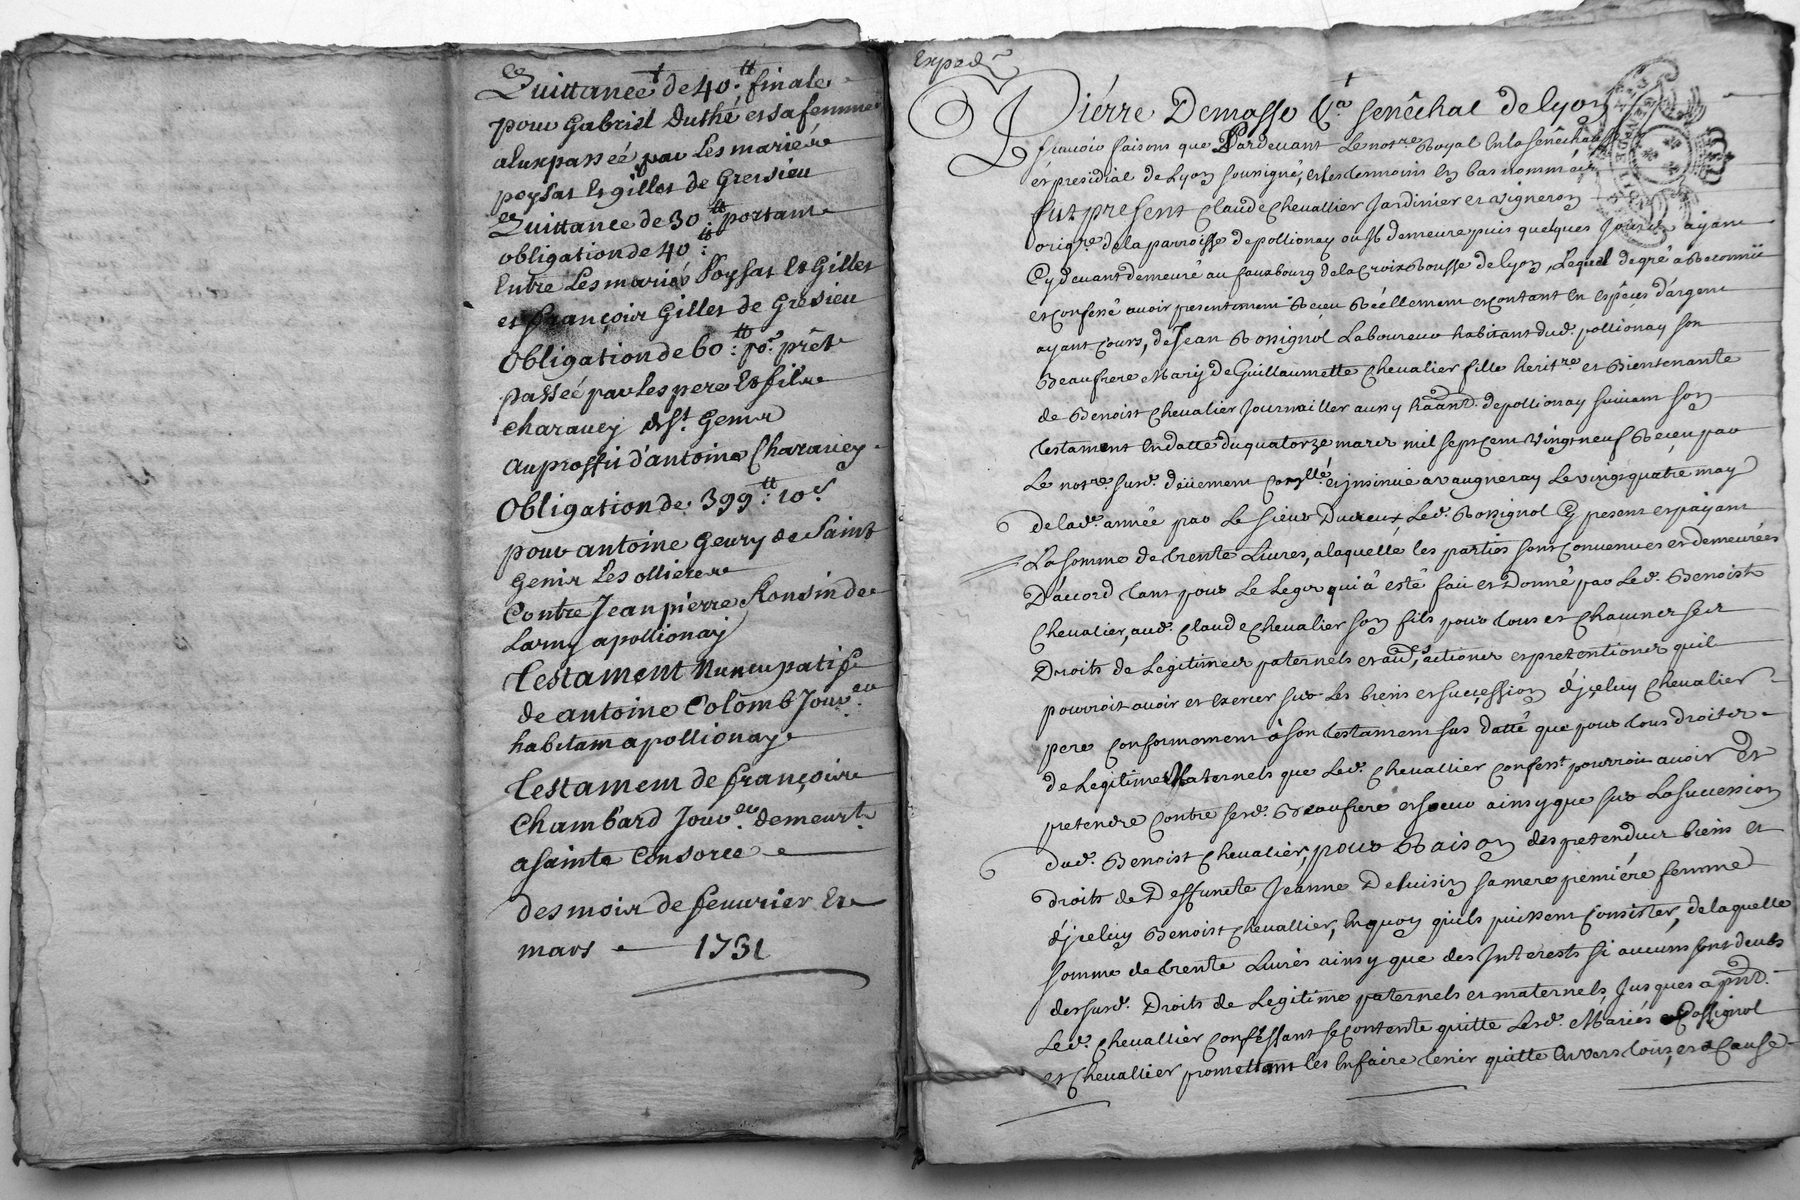 Quittance de 40.tt finale
pour Gabriel Duthé et sa femme
a luy passéé par les mariés
poysat et gilles de Gresieu
Quittance de 30.tt portant
obligation de 40.tt
Entre Les mariés Poysat Et Gilles
et françois Gilles de Gresieu
Obligation de 60.tt po.r prêt
passéé par les pere Et fils
charavey de St. Genis
au proffit d'antoine Charavey.
Obligation de 399.tt: 10.s
pour antoine Geury de Saint
Genis Les ollieres
Contre Jean pierre Ronsin de
Larny a pollionay
Testament Nuncupatif
de antoine Colomb Jour.
habitant a pollionay
Testament de françoise
Chambard Jour. demeurt.
a Sainte Consorce
des mois de feuurier Et
mars 1731
Exped.
Piérre Demasso &a senêchal de lyon
scauoir faisons que Pardeuant Le not.re Royal En la senêchaussée
et presidial de Lyon soussigné, et les temoins En bas nommés
fut present Claude Chevallier Jardinier et vigneron
orig.re de la parroisse de pollionay ou Il demeure puis quelques Jours ayant
Cy deuant demeuré au fauxbourg de la Croix Rousse de lyon, Lequel de gré a Reconnu
et confessé auoir presentement Receu Réellement et contant En espéces d'argent
ayant cours, de Jean Rossignol Laboureur habitant dud. pollionay son
Beaufrere Mary de Guillaumette Chevalier fille herit.re et Bientenante
de Benoist Chevalier Journailler aussy hâant. de pollionay suivant son
testament En datte du quatorze mars mil sept cent vingt neuf Receu par
Le not.re susd. düement Conllé. et insinué a vaugneray Le vingt quatre may
de lad. année par Le sieur Ducreux Led. Rossignol Cy present et payant
La somme de trente Livres, a laquelle les parties sont convenues et demeurées
D'accord tant pour Le Legs qui a esté fait et Donné par Led. Benoist
Chevalier, aud. Claude Chevalier son fils pour tous et Chacuns ses
Droits de Legitimes paternels et aud, actions et pretentions quil
pourroit avoir et Exercer sur Les biens et succession d'jceluy Chevalier
pere Conformement à son testament sus datté que pour tous droits
de Legitimes Maternels que Led. Chevallier Confesst. pourroit avoir Et
pretendre Contre sesd. Beaufrere et soeur ainsy que sur La succession
dud. Benoist Chevalier, pour Raison des pretendus biens et
droits de Deffuncte Jeanne Deluisin sa mere première femme
d'jceluy Benoist Chevallier, En quoy quils puissent Consister, de laquelle
somme de trente Livres ainsy que des Interests si aucuns sont deubs
des susd. Droits de Legitime paternels et maternels, Jusques a pnt.
Led. Chevallier Confessant se contente quitte Lesd. Mariés Rossignol
et Chevallier promettant les En faire tenir quitte Envers tous, et a Cause